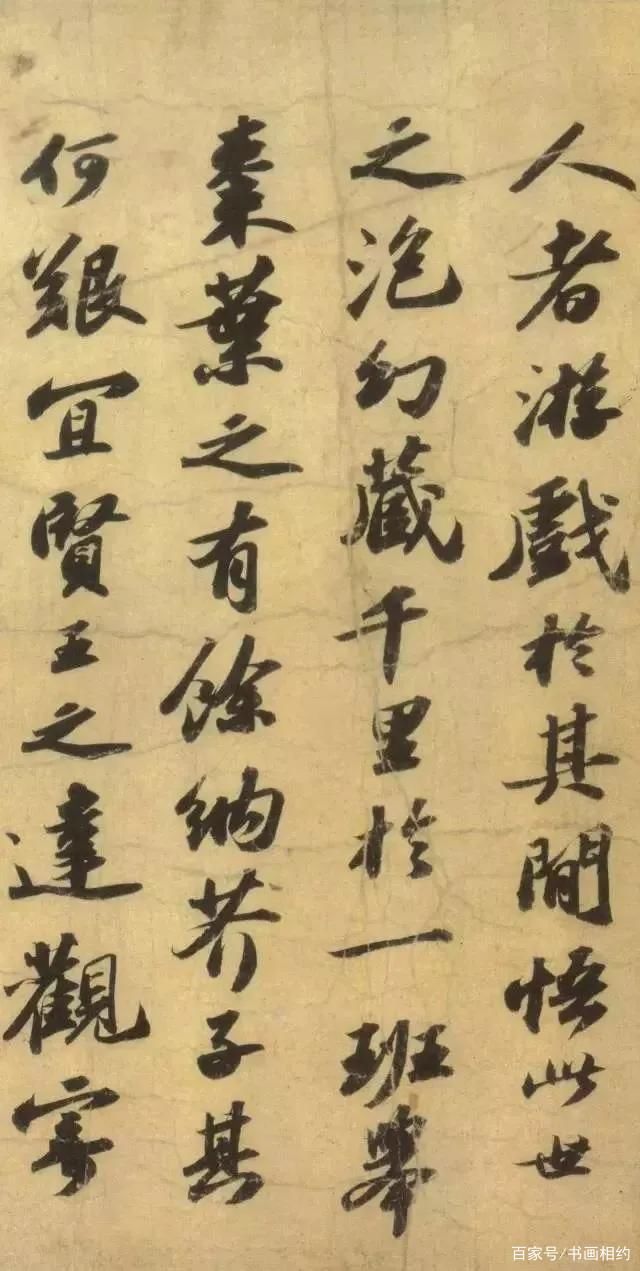 人者游戲於其間悟此世
之泡幻藏千里於一班舉
棗葉之有餘納芥子其
何艱宜賢王之達觀寄
百家号/书画相约